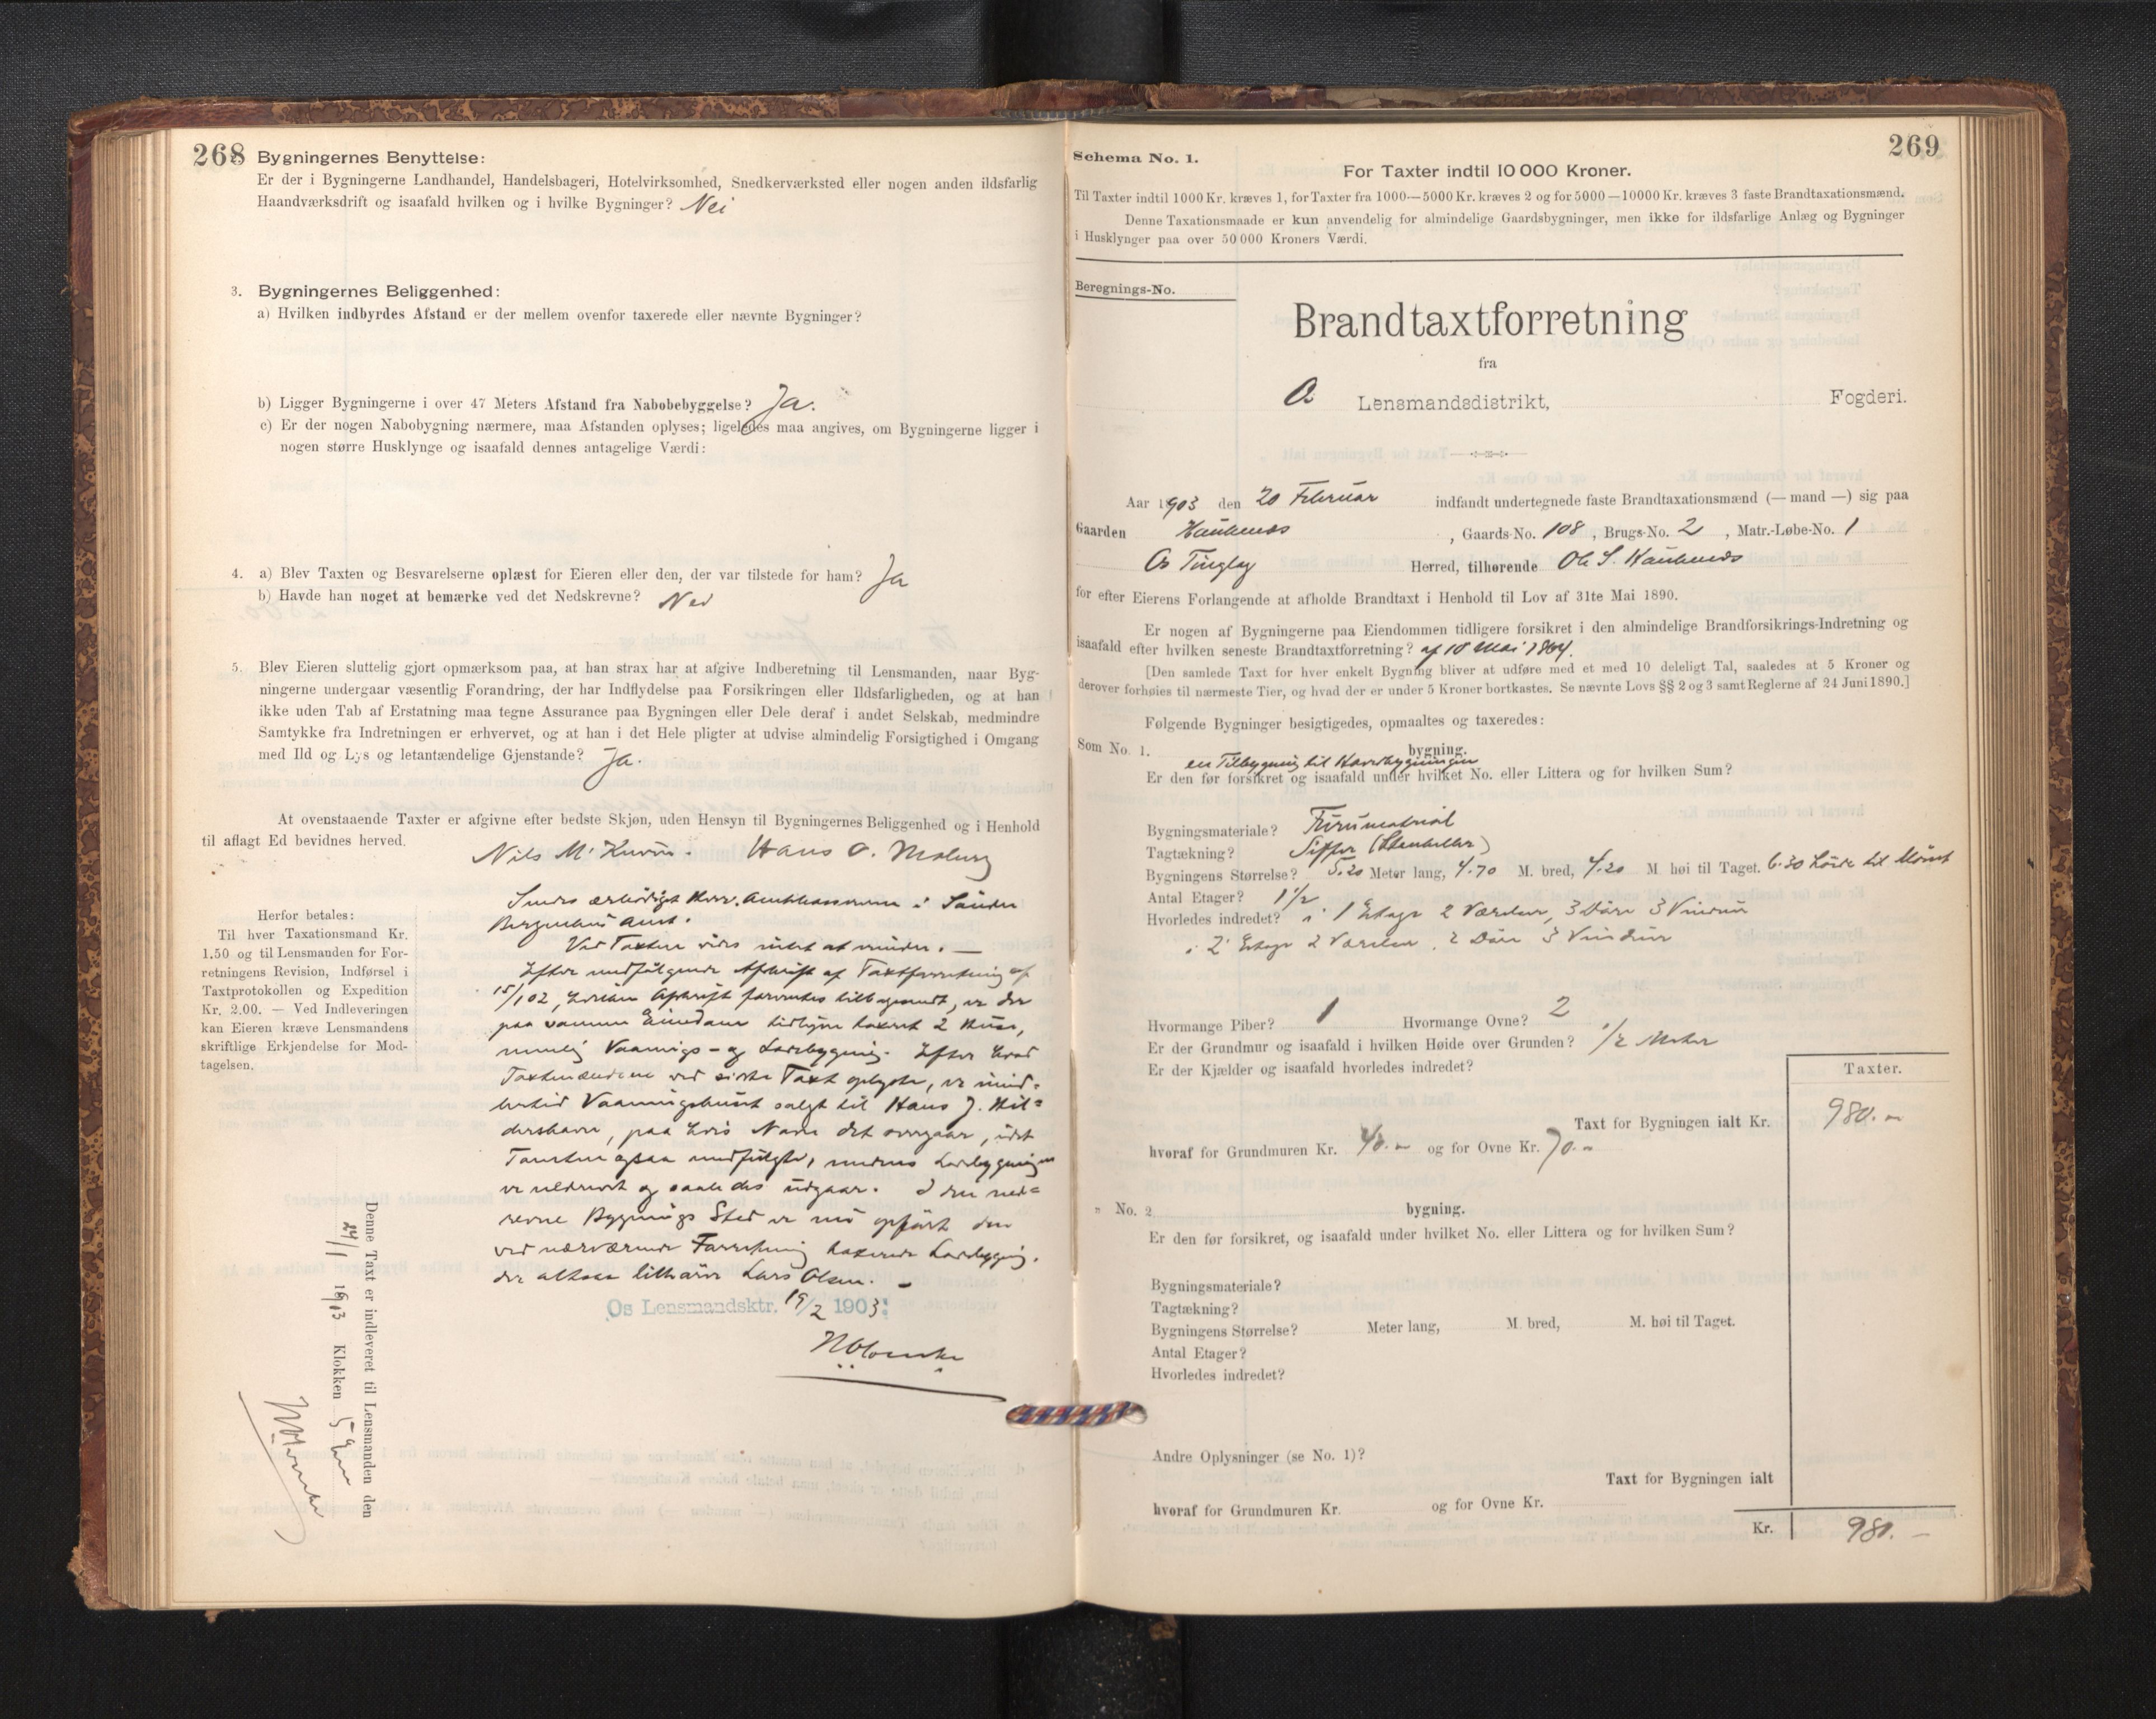 268
Bygningernes Benyttelse:
Er der i Bygningerne Landhandel, Handelsbageri, Hotelvirksomhed, Snedkerværksted eller nogen anden ildsfarlig
Haandværksdrift og isaafald hvilken og i hvilke Bygninger? Nei
3. Bygningernes Beliggenhed:
a) Hvilken indbyrdes Afstand er der mellem ovenfor taxerede eller nævnte Bygninger?
b) Ligger Bygningerne i over 47 Meters Afstand fra Nabobebyggelse? Ja.
c) Er der nogen Nabobygning nærmere, maa Afstanden oplyses; ligeledes maa angives, om Bygningerne ligger i
nogen større Husklynge og isaafald dennes antagelige Værdi:
4. a) Blev Taxten og Besvarelserne oplæst for Eieren eller den, der var tilstede for ham? Ja
b) Havde han noget at bemærke ved det Nedskrevne? Nei
5. Blev Eieren sluttelig gjort opmærksom paa, at han strax har at afgive Indberetning til Lensmanden, naar Byg-
ningerne undergaar væsentlig Forandring, der har Indflydelse paa Forsikringen eller Ildsfarligheden, og at han
ikke uden Tab af Erstatning maa tegne Assurance paa Bygningen eller Dele deraf i andet Selskab, medmindre
Samtykke fra Indretningen er erhvervet, og at han i det Hele pligter at udvise almindelig Forsigtighed i Omgang
med Ild og Lys og letantændelige Gjenstande? Ja.
At ovenstaaende Taxter er afgivne efter bedste Skjøn, uden Hensyn til Bygningernes Beliggenhed og i Henhold
til aflagt Ed bevidnes herved.
Nils M. Hans O. Moberg
Sendes ærbödigst Herr. Amtkassereren i Søndre
Bergenhus Amt.
Ved Taxten vides intet at erindre. —
Efter medfølgende Afskrift af Taxtforretning af
15/1 02, hvilken Afskrift forventes tilbagesendt, er der
paa samme Eiendom tidligere taxeret 2 Huse,
nemlig Vaanings- og Ladebygning. Efter hvad
Taxtmændene ved sidste Taxt oplyste, er imid=
lertid Vaaningshuset solgt til Hans J. Hil=
dershavn, paa hvis Navn det overgaar, idet
Tomten ogsaa medfulgte, medens Ladebygningen
er nedrevet og saaledes udgaar. I den ned=
revne Bygnings Sted er nu opført den
ved nærværende Forretning taxerede Ladebygning,
der altsaa tilhører Lars Olsen. —
Os Lensmandsktr. 19/2 1903.
Herfor betales:
Til hver Taxationsmand Kr.
1.50 og til Lensmanden for For-
retningens Revision, Indførsel i
Taxtprotokollen og Expedition
Kr. 2.00. — Ved Indleveringen
kan Eieren kræve Lensmandens
skriftlige Erkjendelse for Mod-
tagelsen.
Denne Taxt er indleveret til Lensmanden den
29/1 1903 Klokken 5
269
Schema No. 1.
For Taxter indtil 10 000 Kroner.
Til Taxter indtil 1000 Kr. kræves 1, for Taxter fra 1000—5000 Kr. kræves 2 og for 5000—10000 Kr. kræves 3 faste Brandtaxationsmænd.
Denne Taxationsmaade er kun anvendelig for almindelige Gaardsbygninger, men ikke for ildsfarlige Anlæg og Bygninger
i Husklynger paa over 50 000 Kroners Værdi.
Beregnings-No.
Brandtaxtforretning
fra
Os Lensmandsdistrikt, Fogderi.
Aar 1903 den 20 Februar indfandt undertegnede faste Brandtaxationsmænd (— mand —) sig paa
Gaarden Haukenæs, Gaards-No. 108, Brugs-No. 2, Matr.-Løbe-No. 1
Os Tinglag Herred, tilhørende Ole S. Haukenæs
for efter Eierens Forlangende at afholde Brandtaxt i Henhold til Lov af 31te Mai 1890.
Er nogen af Bygningerne paa Eiendommen tidligere forsikret i den almindelige Brandforsikrings-Indretning og
isaafald efter hvilken seneste Brandtaxtforretning? af 10 Mai
[Den samlede Taxt for hver enkelt Bygning bliver at udføre med et med 10 deleligt Tal, saaledes at 5 Kroner og
derover forhøies til nærmeste Tier, og hvad der er under 5 Kroner bortkastes. Se nævnte Lovs §§ 2 og 3 samt Reglerne af 24 Juni 1890.]
Følgende Bygninger besigtigedes, opmaaltes og taxeredes:
Som No. 1. en Tilbygning til Hovedbygningen bygning.
Er den før forsikret og isaafald under hvilket No. eller Littera og for hvilken Sum?
Bygningsmateriale? Furumaterial
Tagtækning? Skifer (Stenheller)
Bygningens Størrelse? 5.20 Meter lang, 4.70 M. bred, 4.20 M. høi til Taget. 6.30 Høide til Mønet
Antal Etager? 1 1/2
Hvorledes indredet? i 1 Etage 2 Værelser, 3 Döre 3 Vinduer
i 2 Etage 2 Værelser, 2 Döre 3 Vinduer
Hvormange Piber? 1 Hvormange Ovne? 2
Er der Grundmur og isaafald i hvilken Høide over Grunden? 1/2 Meter
Er der Kjælder og isaafald hvorledes indredet?
Taxter.
Taxt for Bygningen ialt Kr. 980.—
hvoraf for Grundmuren Kr. 40.— og for Ovne Kr. 70.—
" No. 2 bygning.
Er den før forsikret, og isaafald under hvilket No. eller Littera og for hvilken Sum?
Bygningsmateriale?
Tagtækning?
Bygningens Størrelse? Meter lang, M. bred, M. høi til Taget.
Antal Etager?
Hvorledes indredet?
Andre Oplysninger (se No. 1)?
Taxt for Bygningen ialt
hvoraf for Grundmuren Kr. og for Ovne Kr.
Kr. 980.—